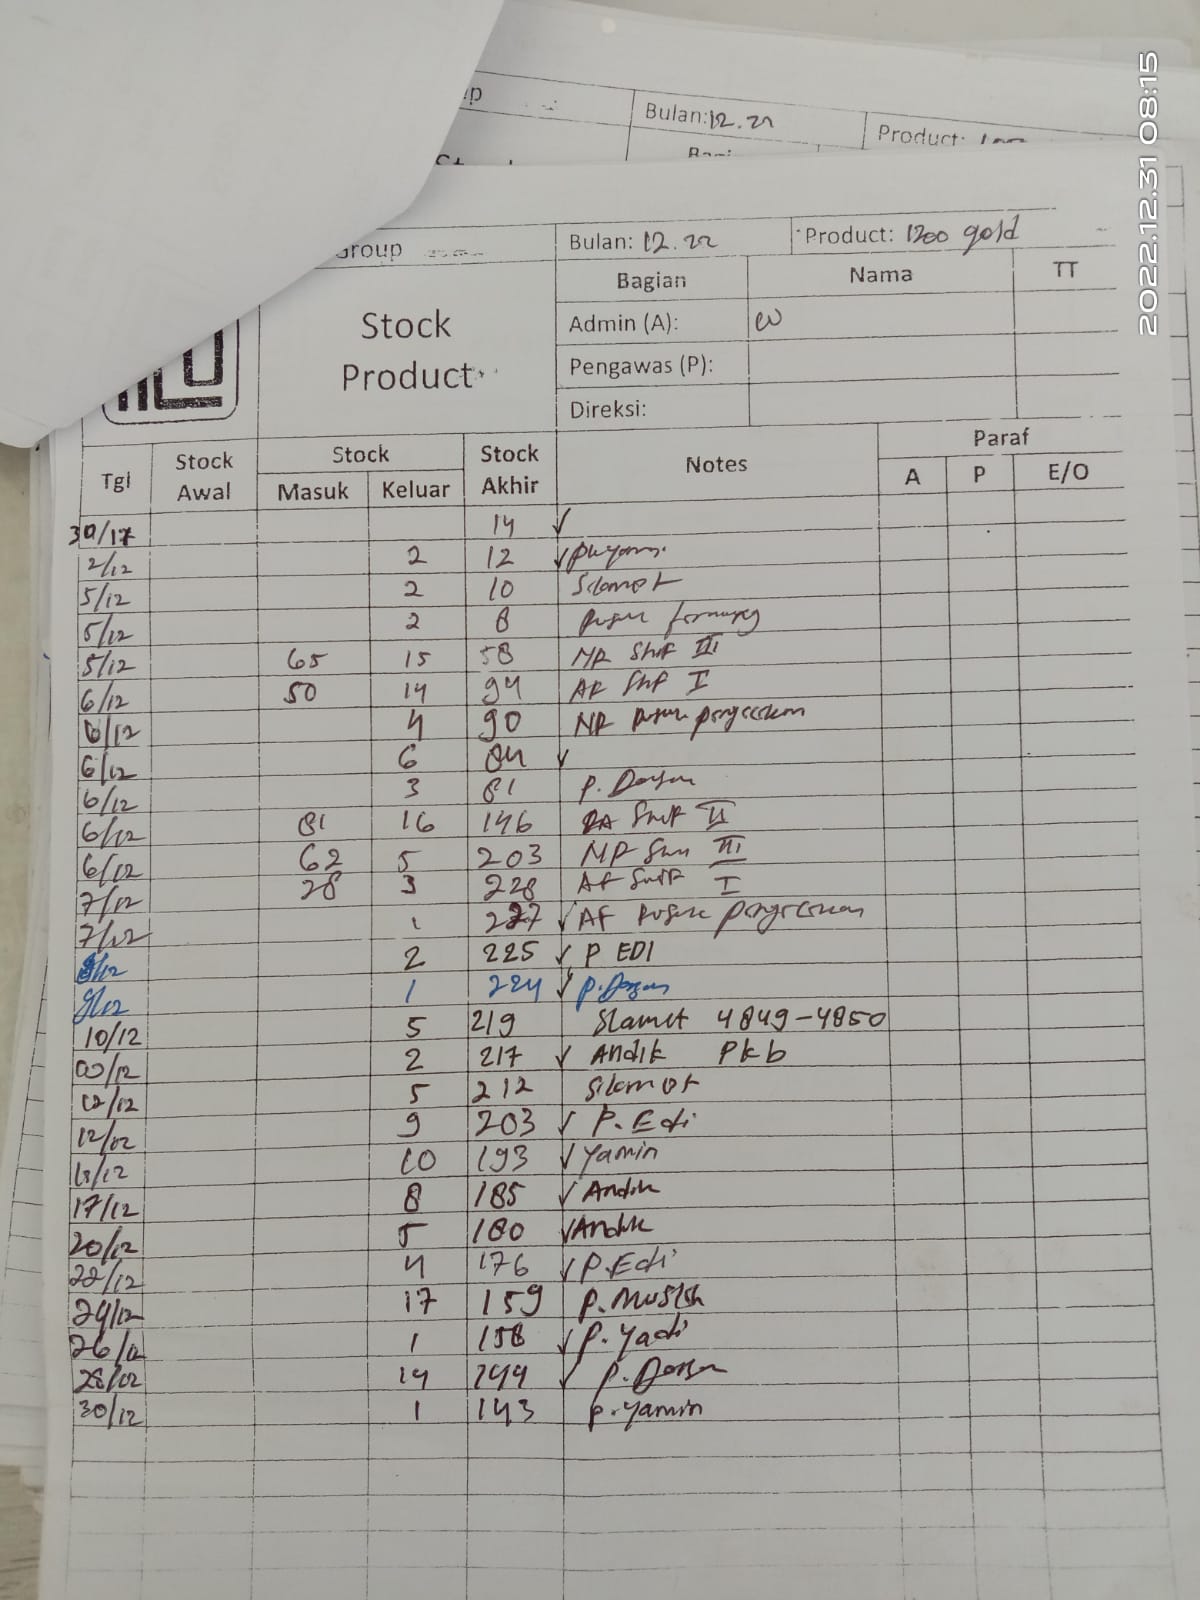 Bulan: 12.22
Product:
Group
Bulan: 12.22
Product: 1200 gold
Stock
Product
Bagian Nama TT
Admin (A):
Pengawas (P):
Direksi:
Tgl Stock Awal Stock Masuk Keluar Stock Akhir Notes Paraf A P E/O
14 ✓
2/12 2 12 ✓
5/12 2 10 Slamet
5/12 2 8
5/12 65 15 58 NR Shif III
6/12 50 14 94 AF Shif I
6/12 4 90
6/12 6 84 ✓
6/12 3 81 P.
6/12 81 16 146 Shif II
6/12 62 5 203 III
7/12 28 3 228 AF Shif I
7/12 1 227 ✓ AF
2 225 ✓ P EDI
9/12 1 224 ✓ P.
10/12 5 219 Slamet 4849-4850
2 217 ✓ Andik Pkb
12/12 5 212 Slamet
12/12 9 203 ✓ P. Edi
10 193 ✓ Yamin
17/12 8 185 ✓ Andik
20/12 5 180 ✓ Andik
22/12 4 176 ✓ P. Edi
24/12 17 159
26/12 1 158 ✓ P. Yadi
28/12 14 144 ✓ P.
30/12 1 143 P. Yamin
2022.12.31 08:15